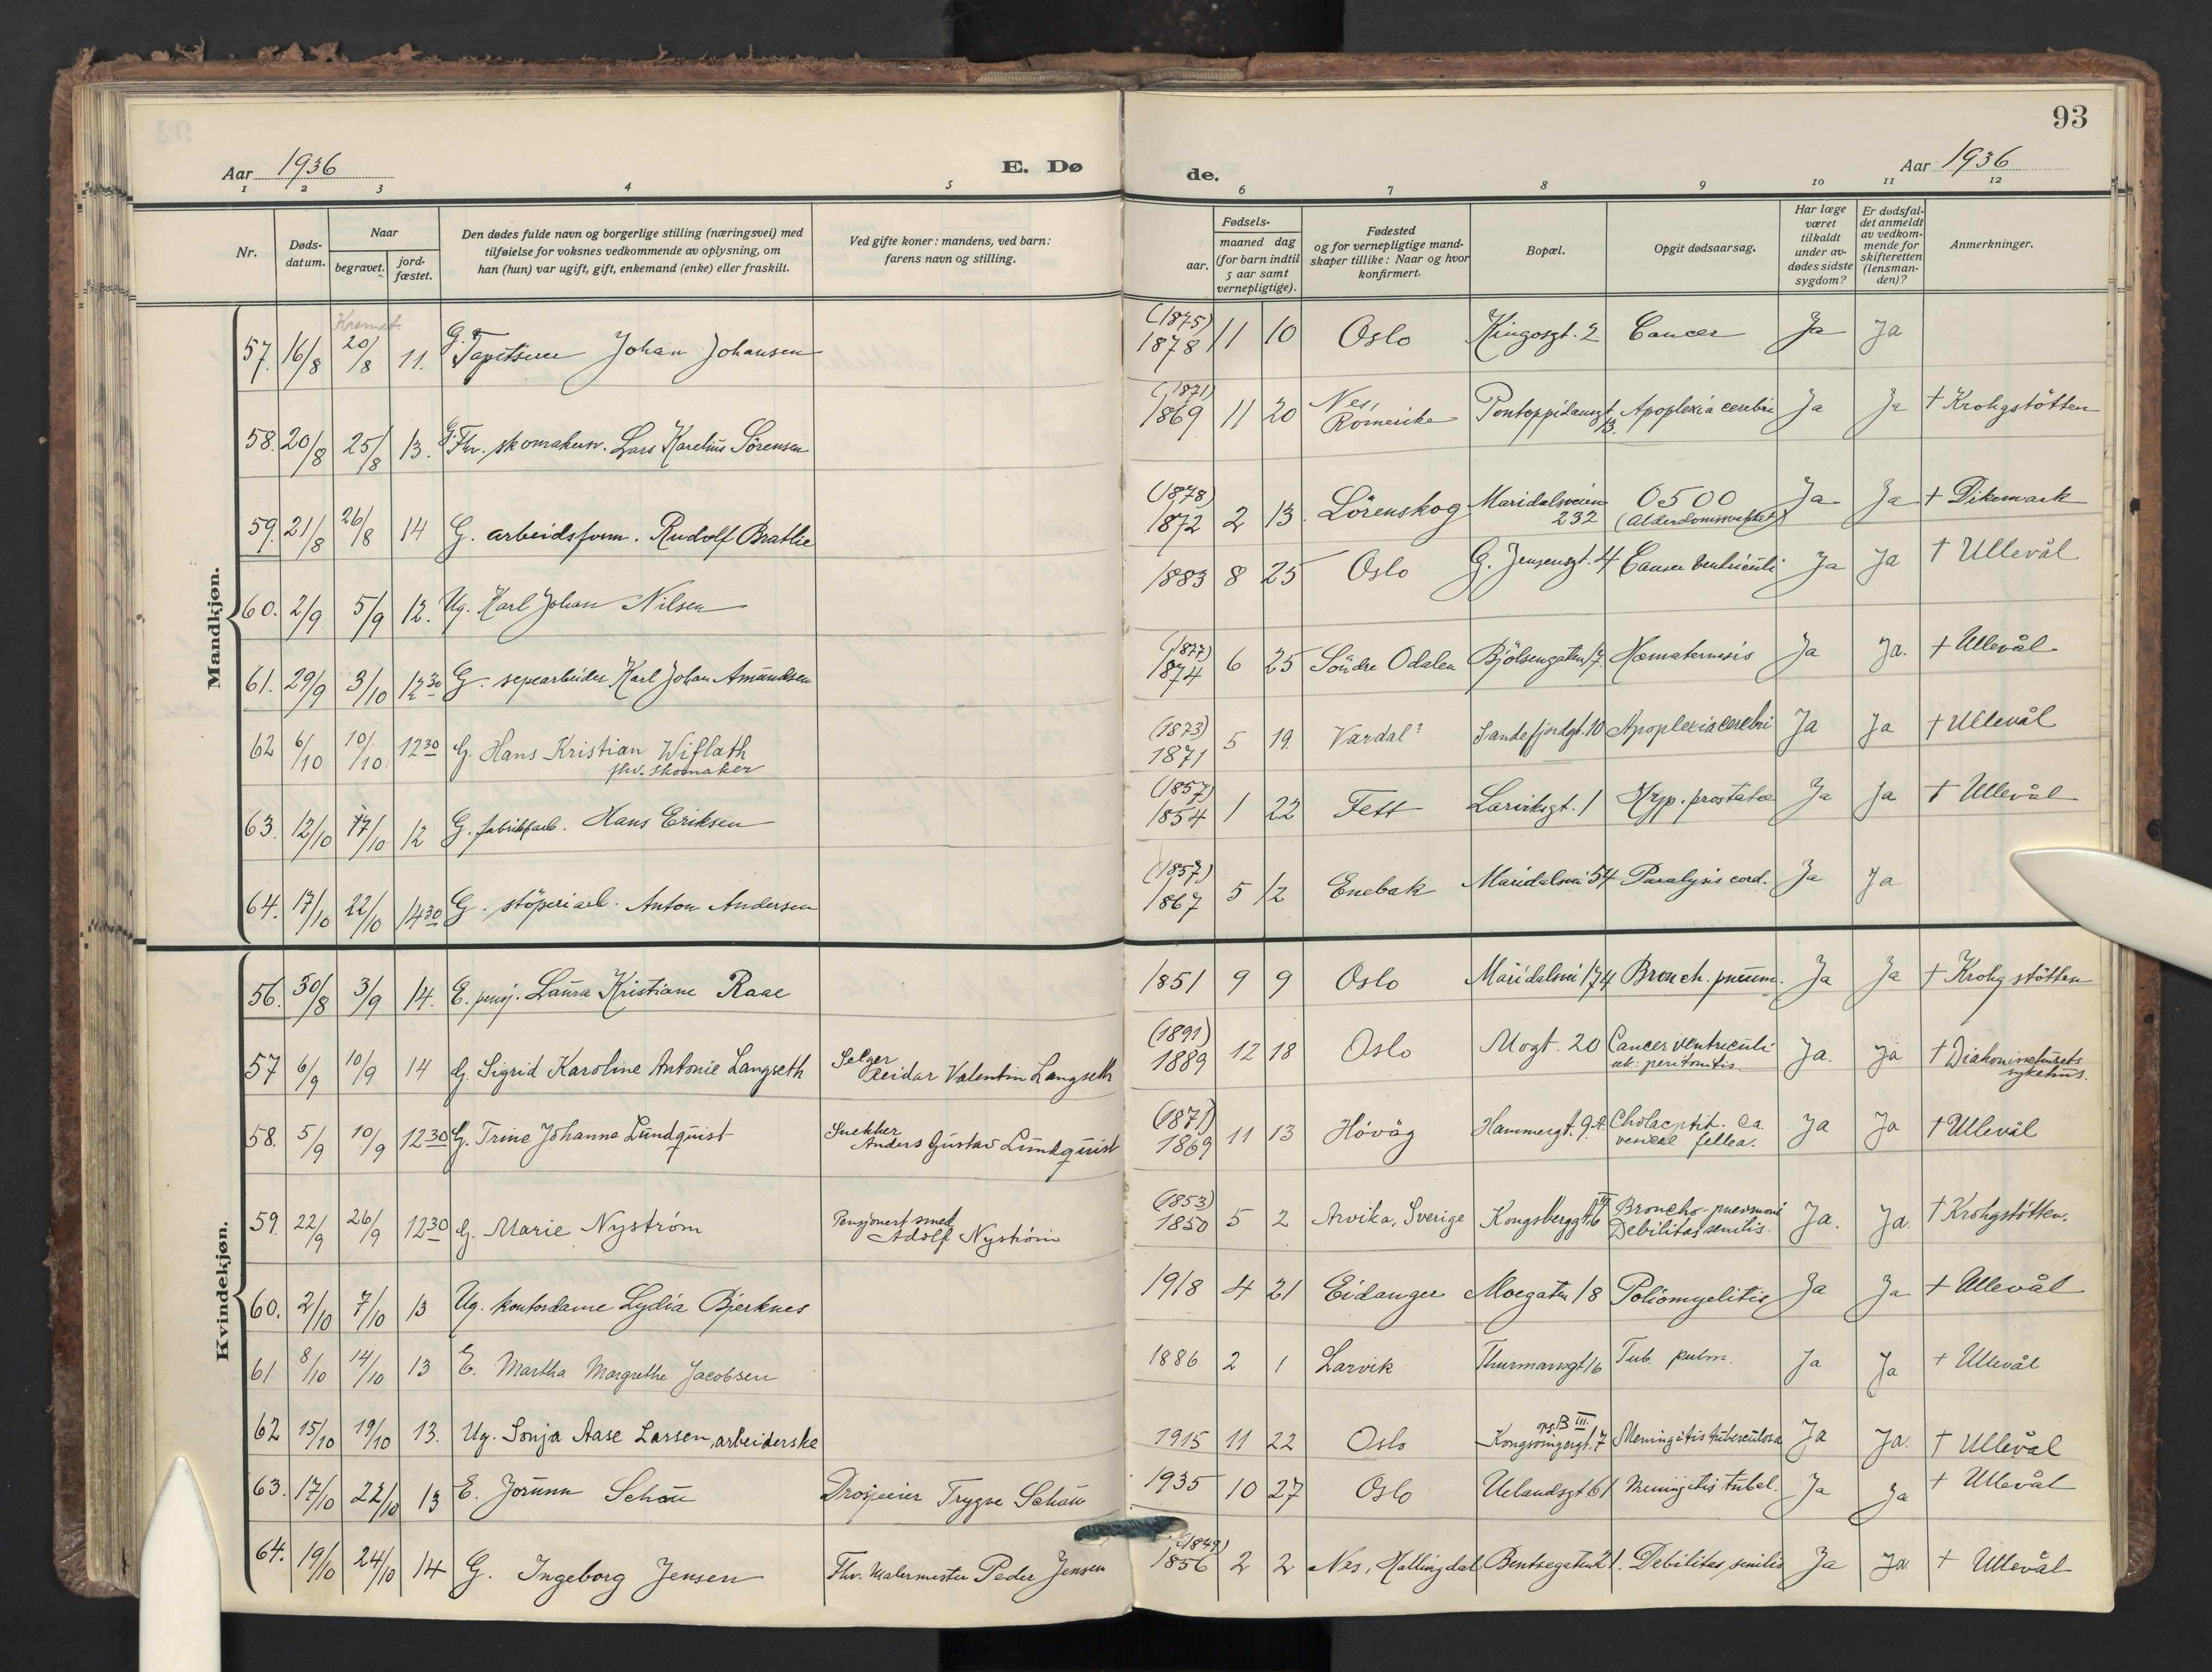 93
Aar 1936 E. Dø de. Aar 1936
1 2 3 4 5 6 7 8 9 10 11 12
Nr.
Døds-
datum.
Naar
begravet.
jord-
fæstet.
Den dødes fulde navn og borgerlige stilling (næringsvei) med
tilføielse for voksnes vedkommende av oplysning, om
han (hun) var ugift, gift, enkemand (enke) eller fraskilt.
Ved gifte koner: mandens, ved barn:
farens navn og stilling.
Fødsels-
aar.
maaned dag
(for barn indtil
5 aar samt
vernepligtige).
Fødested
og for vernepligtige mand-
skaper tillike: Naar og hvor
konfirmert.
Bopæl.
Opgit dødsaarsag.
Har læge
været
tilkaldt
under av-
dødes sidste
sygdom?
Er dødsfal-
det anmeldt
av vedkom-
mende for
skifteretten
(lensman-
den)?
Anmerkninger.
Mandkjøn.
Kremet.
57. 16/8 20/8 11. G. Tapetserer Johan Johansen (1875) 1878 11 10 Oslo Kingosgt. 2 Cancer Ja Ja
58. 20/8 25/8 13. G. Fhv. skomakersv. Lars Karelius Sörensen (1871) 1869 11 20 Nes, Romerike Pontoppidansgt. 13. Apoplexia cerebri Ja Ja † Krohgstötten
59. 21/8 26/8 14 G. arbeidsform. Rudolf Bratlie (1878) 1872 2 13. Lörenskog Maridalsveien 232 0500 (Alderdomssvekket) Ja Ja † Dikemark
60. 2/9 5/9 12. Ug. Karl Johan Nilsen 1883 8 25 Oslo G. Jensensgt. 4 Cancer Ventriculi Ja Ja † Ullevål
61. 29/9 3/10 12 30 G. sepearbeider Karl Johan Amundsen (1877) 1874 6 25 Söndre Odalen Bjölsengaten 17. Hæmatemesis Ja Ja. † Ullevål
62 6/10 10/10 12 30 G. Hans Kristian Wiflath fhv. skomaker (1873) 1871 5 19. Vardal? Sandefjordgt. 10 Apoplexia cerebri Ja Ja † Ullevål
63. 12/10 17/10 12 G. fabrikkarb. Hans Eriksen (1857) 1854 1 22 Fett Larviksgt. 1 Hyp. prostatae Ja Ja † Ullevål
64. 17/10 22/10 14 30 G. stöperiarb. Anton Andersen (1857) 1867 5 12 Enebak Maridalsvei 54 Paralysis cord. Ja Ja
Kvindekjøn.
56. 30/8 3/9 14. E. pensj. Laura Kristiane Raae 1851 9 9 Oslo Maridalsvei 174 Bronch. pneum. Ja Ja † Krohgstötten
57 6/9 10/9 14 G. Sigrid Karoline Antonie Langseth Selger Reidar Valentin Langseth (1891) 1889 12 18 Oslo Mogt. 20 Cancer ventriculi peritonitis. Ja. Ja † Diakonissehusets sykehus.
58. 5/9 10/9 12 30 G. Trine Johanne Lundquist Snekker Anders Gustav Lundquist (1871) 1869 11 13 Hövåg Hammergt. 9 Cholecystit. Ca vesicae fellea. Ja Ja † Ullevål
59. 22/9 26/9 12 30 G. Marie Nyström Pensjonert smed Adolf Nyström (1853) 1850 5 2 Arvika, Sverige Kongsberggt. 6 III Broncho-pneumoni Debilitas senilis. Ja. Ja. † Krohgstötten.
60. 2/10 7/10 13 Ug. kontordame Lydia Bjerknes 1918 4 21 Eidanger Moegaten 18 Poliomyelitis Ja Ja † Ullevål
61 8/10 14/10 13 E. Martha Margrethe Jacobsen 1886 2 1 Larvik Thurmannsgt. 6 Tub. pulm. Ja Ja † Ullevål
62 15/10 19/10 13. Ug. Sonja Aase Larsen, arbeiderske 1915 11 22 Oslo opg. B III. Kongsvingergt. 7 Meningitis tuberculosa Ja Ja. † Ullevål
63. 17/10 22/10 13 E. Jorunn Schau Drosjeeier Trygve Schau 1935 10 27 Oslo Uelandsgt 61 Meningitis tubel. Ja Ja † Ullevål
64. 19/10 24/10 14 G. Ingeborg Jensen Fhv. Malermester Peder Jensen (1849) 1856 2 2 Nes, Hallingdal Bentsegaten 21. Debilitas senilis Ja Ja † Ullevål